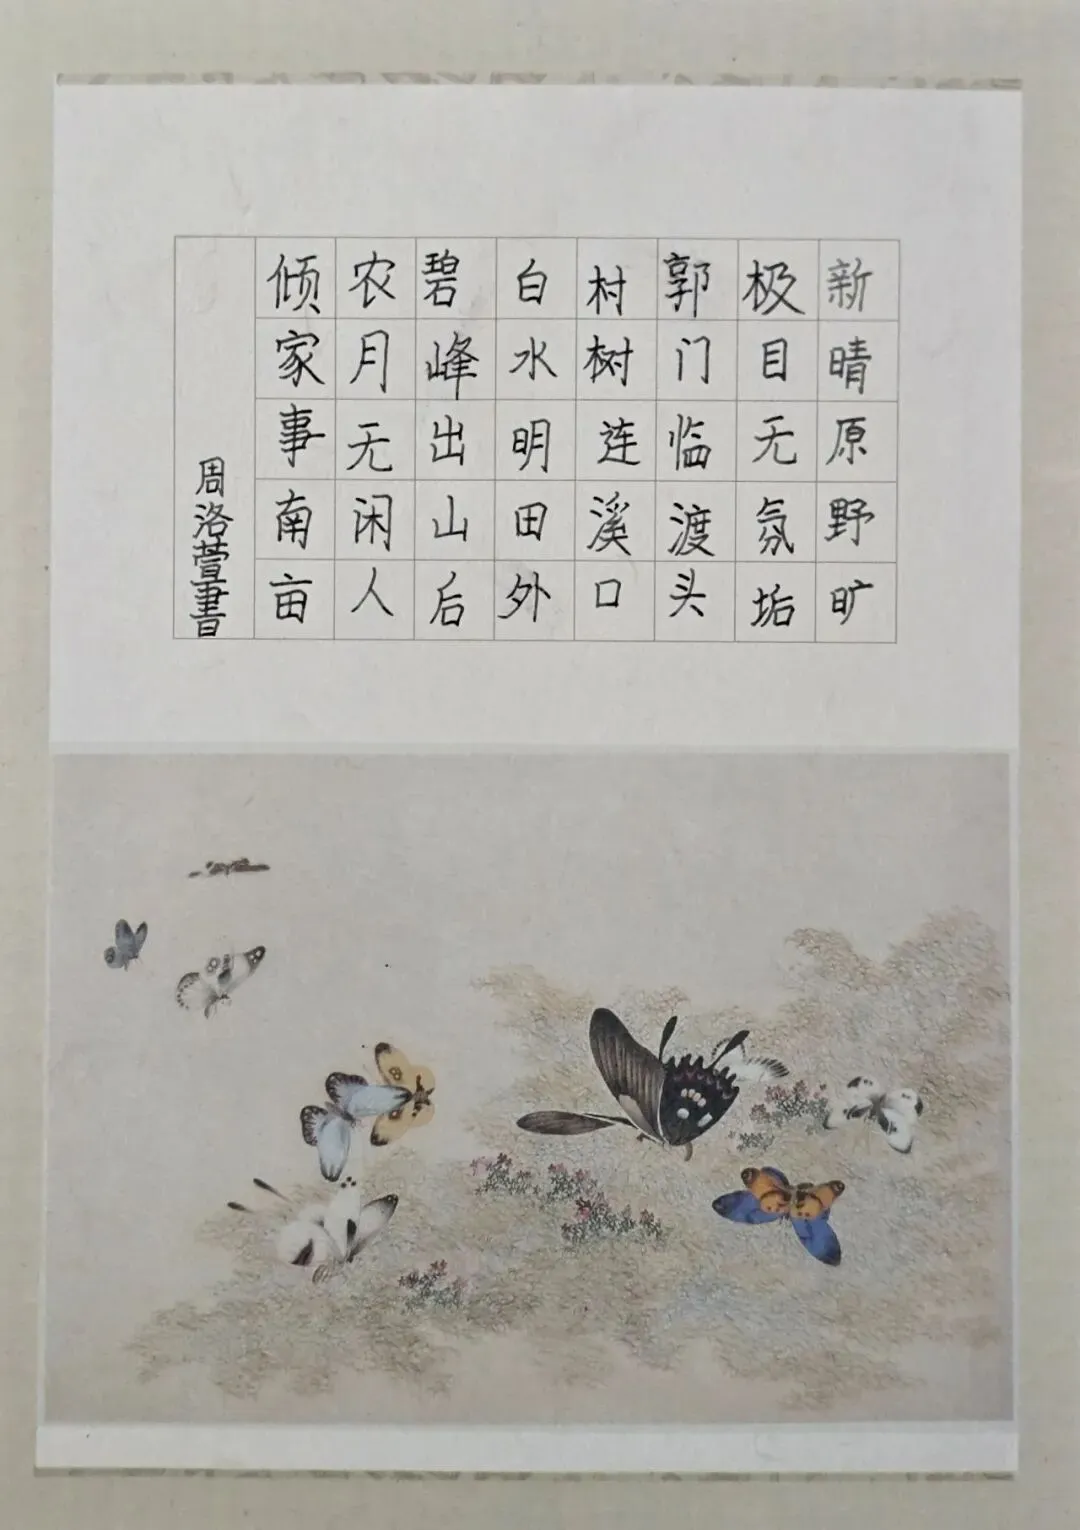 新晴原野旷
极目无氛垢
郭门临渡头
村树连溪口
白水明田外
碧峰出山后
农月无闲人
倾家事南亩
周洛萱書